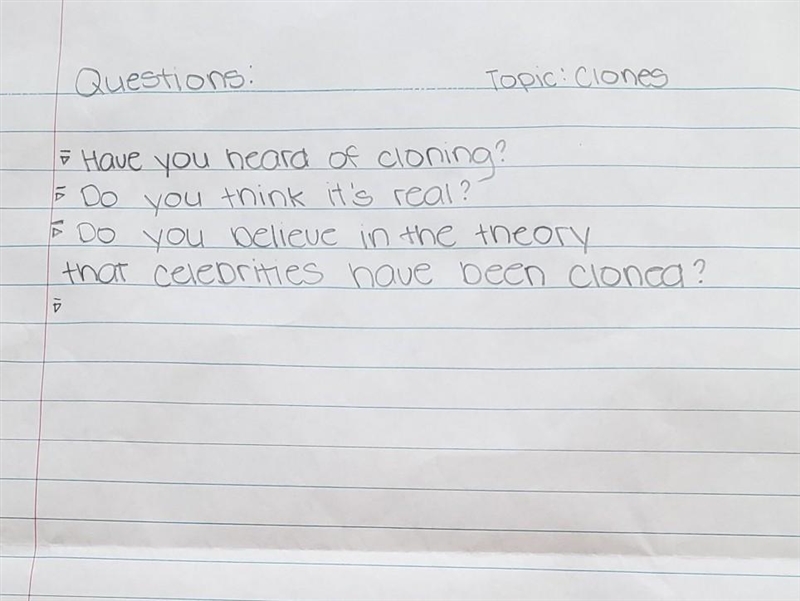 Questions: Topic: Clones
Have you heard of cloning?
Do you think it's real?
Do you believe in the theory
that celebrities have been cloned?